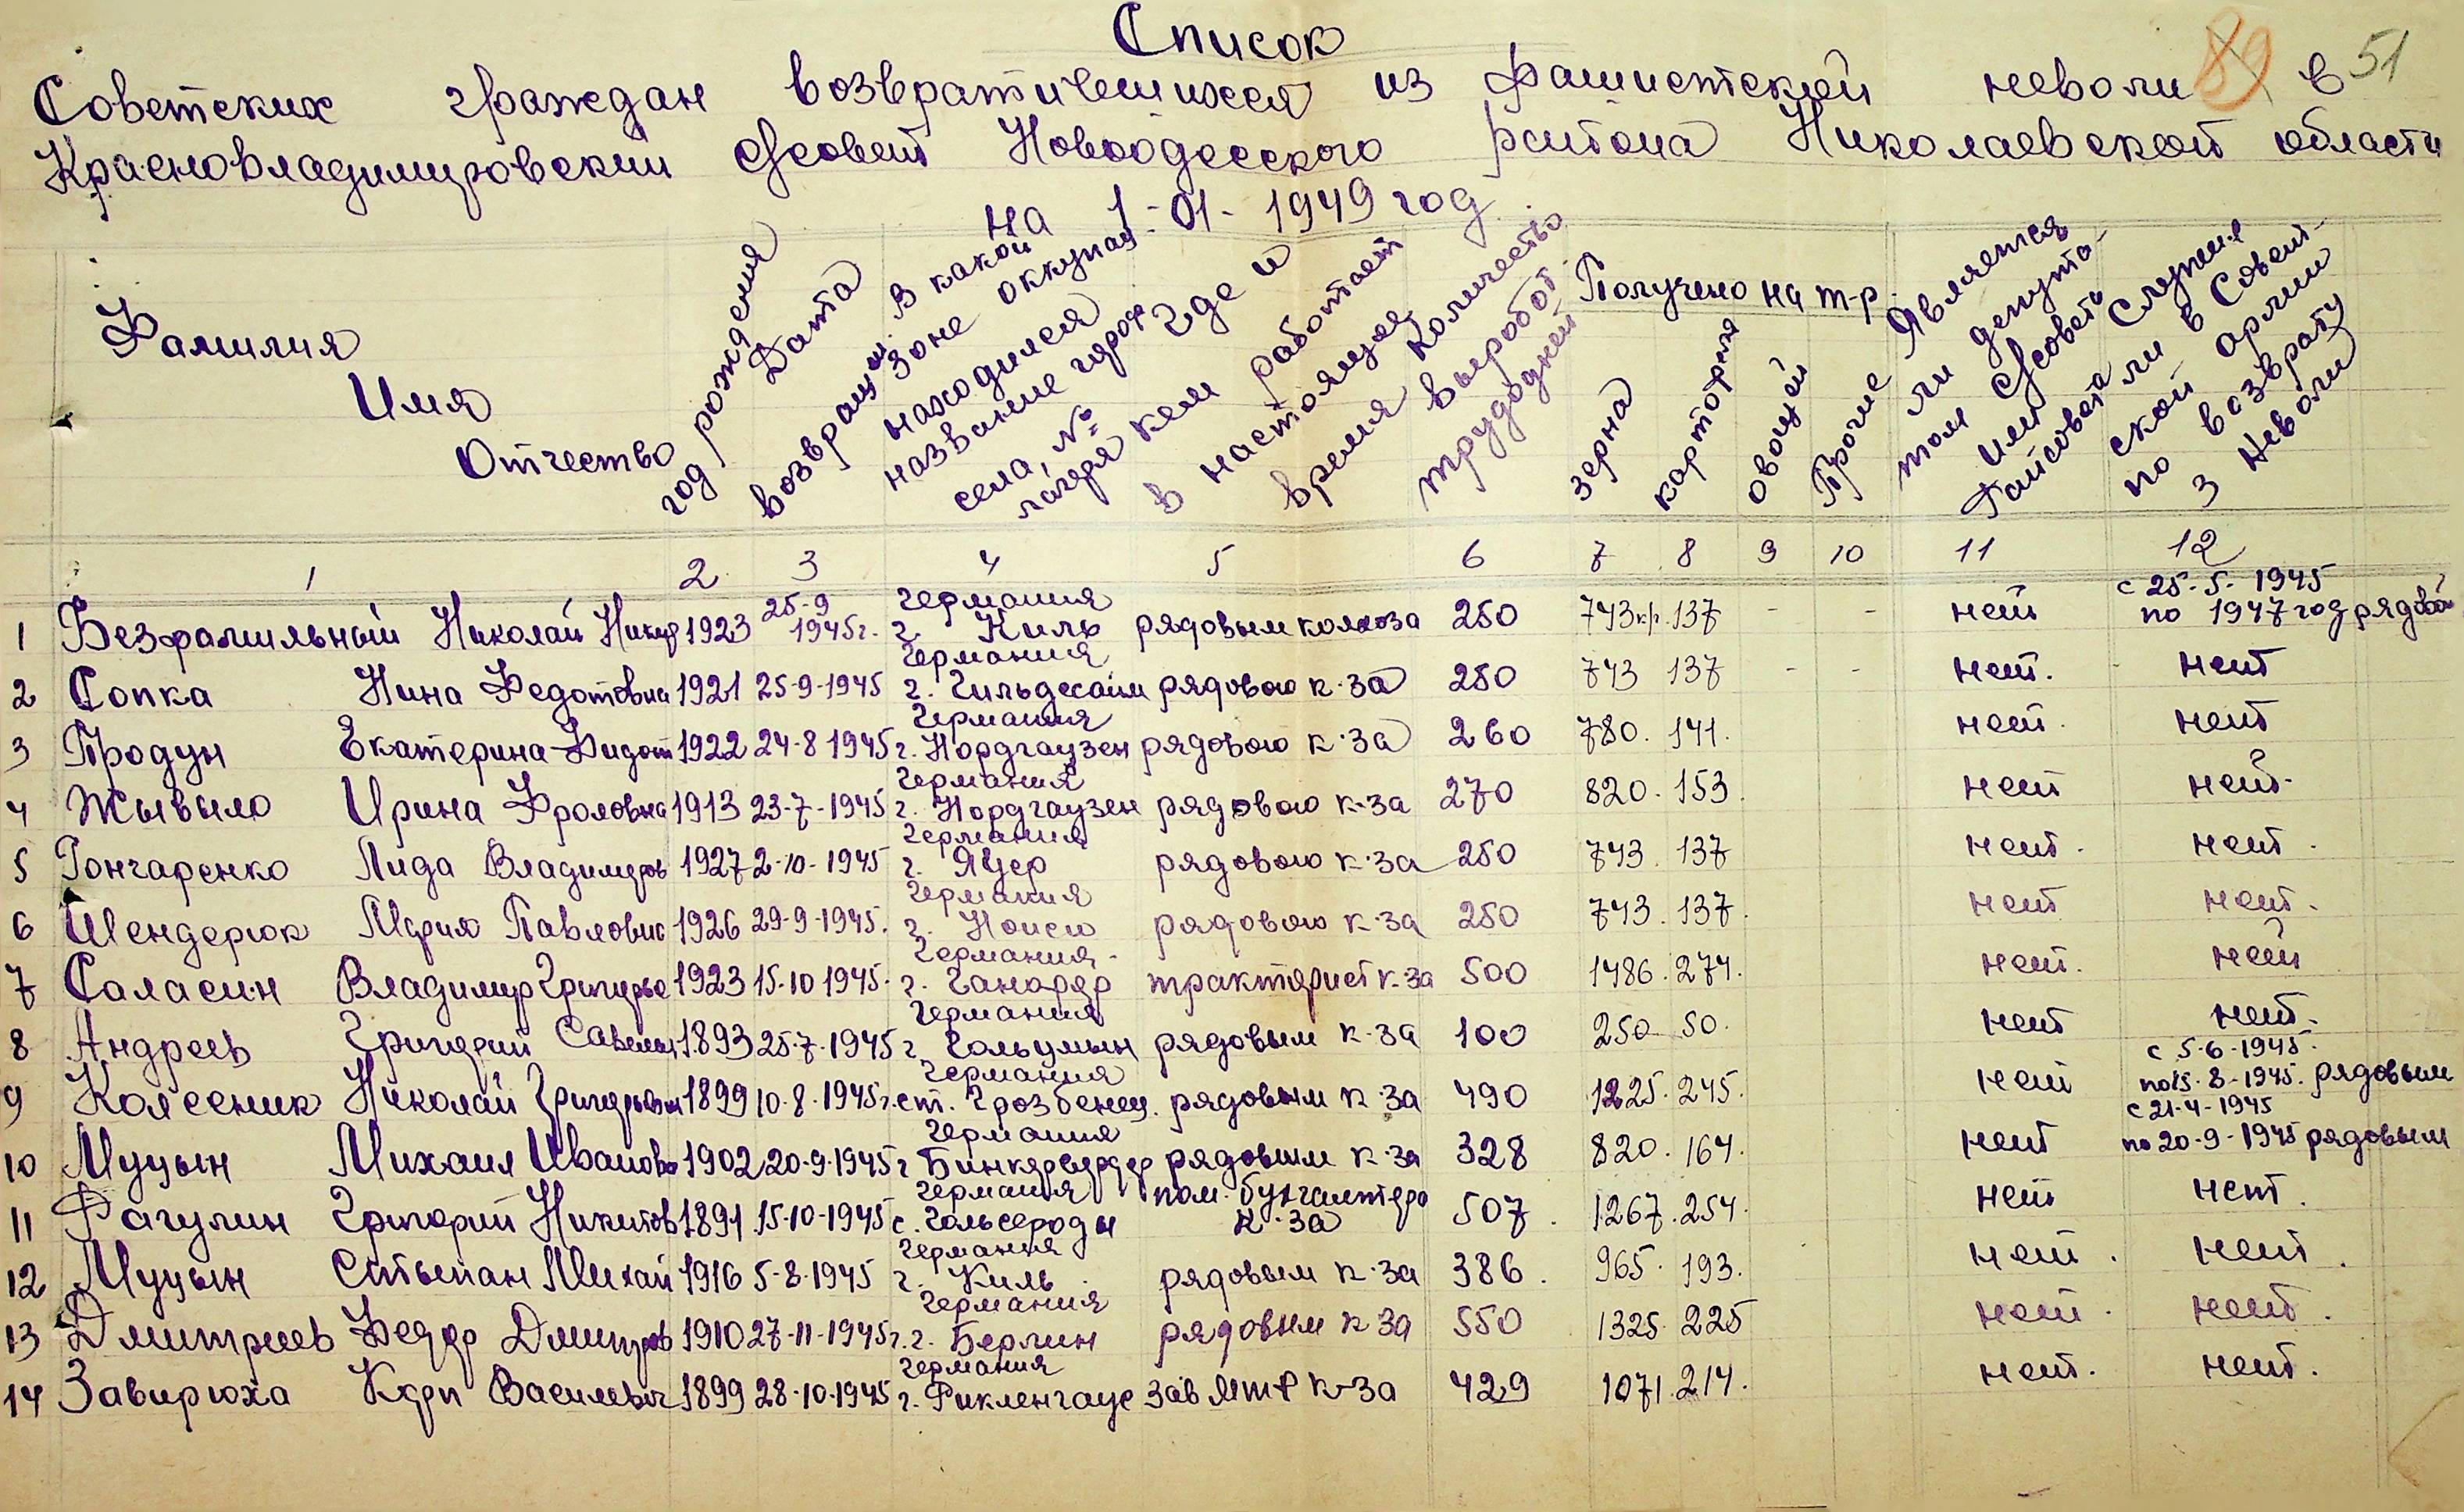 Список
89 51
Советских граждан возвратившихся из фашистской неволи в
Красновладимировский с/совет Новоодесского района Николаевской области
на 1-01-1949 год
Фамилия Имя Отчество
год рождения
Дата возвращен.
В какой зоне оккупац находился название город села, № лагеря
Где и кем работает в настоящее время
Количество выработ. трудодней
Получено на т-р.
зерна
картофеля
овощей
Прочие
Является ли депутатом с/совета или Райсовета
Служил ли в Советской армии по возврату з неволи
1 2 3 4 5 6 7 8 9 10 11 12
1 Безфамильный Николай Никиф 1923 25-9 1945г. Германия г. Киль рядовым колхоза 250 743кг. 137 - - нет с 25-5-1945 по 1947 год рядовой
2 Сопка Нина Федотовна 1921 25-9-1945 Германия г. Гильдесайм рядовою к-за 250 743 137 - - нет. нет
3 Продун Екатерина Фидот 1922 24-8 1945 Германия г. Нордгаузен рядовою к-за 260 780. 141. нет. нет
4 Жывыло Ирина Фроловна 1913 23-7-1945 Германия г. Нордгаузен рядовою к-за 270 820. 153. нет нет.
5 Гончаренко Лида Владимиров 1927 2-10-1945 Германия г. рядовою к-за 250 743. 137 нет. нет.
6 Шендерюк Мария Павловна 1926 29-9-1945. Германия г. рядовою к-за 250 743. 137. нет нет.
7 Саласин Владимир Григорье 1923 15-10 1945. Германия г. трактарист к-за 500 1486. 274. нет. нет
8 Андреев Григорий Савельи 1893 25-7-1945 Германия г. рядовым к-за 100 250 50. нет нет.
9 Колесник Николай Григорьеви 1899 10-8-1945г. Германия ст. рядовым к-за 490 1225. 245. нет с 5-6-1945. по 15-8-1945. рядовым
10 Муцын Михаил Иванов 1902 20-9-1945 Германия г. рядовым к-за 328 820. 164. нет с 21-4-1945 по 20-9-1945 рядовым
11 Рагулин Григорий Никитов 1891 15-10-1945 Германия с. Гольсероды пом. бухгалтера к-за 507. 1267. 254. нет нет.
12 Муцын Стьепан Михай 1916 5-8-1945 Германия г. Киль рядовым к-за 386. 965. 193. нет. нет.
13 Дмитриев Федор Дмитров 1910 27-11-1945г. Германия г. Берлин рядовым к-за 550 1325. 225 нет. нет.
14 Завирюха Карп Васильевич 1899 28-10-1945 Германия г. Рикленгаус Зав МТФ к-за 429 1071. 214. нет. нет.